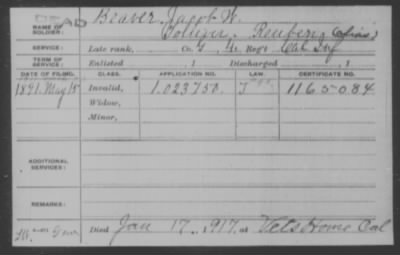 DEAD
Beaver, Jacob W.
NAME OF SOLDIER:
Reubern (alias)
SERVICE: Late rank, Co. G, 4 Reg't Cal Inf
TERM OF SERVICE: Enlisted , 1 Discharged , 1
DATE OF FILING. CLASS. APPLICATION NO. LAW. CERTIFICATE NO.
1891 May 15 Invalid, 1.023750. 1165084
Widow,
Minor,
ADDITIONAL SERVICES:
REMARKS:
Died Jan 17, 1917, at Vets Home Cal